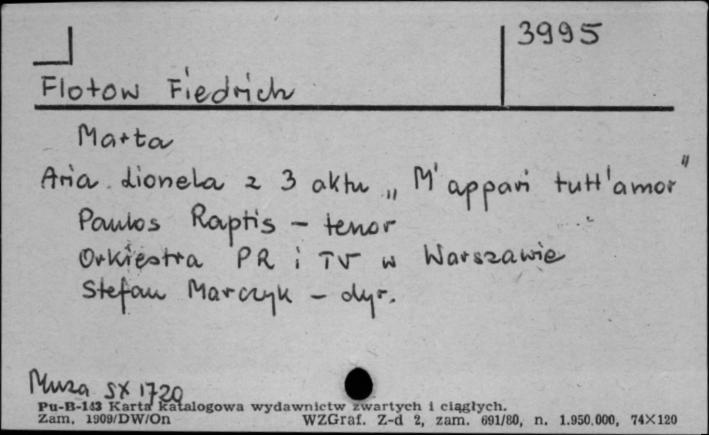 3995
Flotow Fiedrich
Marta
Aria Lionela z 3 aktu „M'appari tutt'amor"
Paulos Raptis - tenor
Orkiestra PR i TV w Warszawie
Stefan Marczyk - dyr.
Muza SX 1720
Pu-B-143 Karta katalogowa wydawnictw zwartych i ciągłych.
Zam. 1909/DW/On WZGraf. Z-d 2, zam. 691/80, n. 1.950.000, 74×120